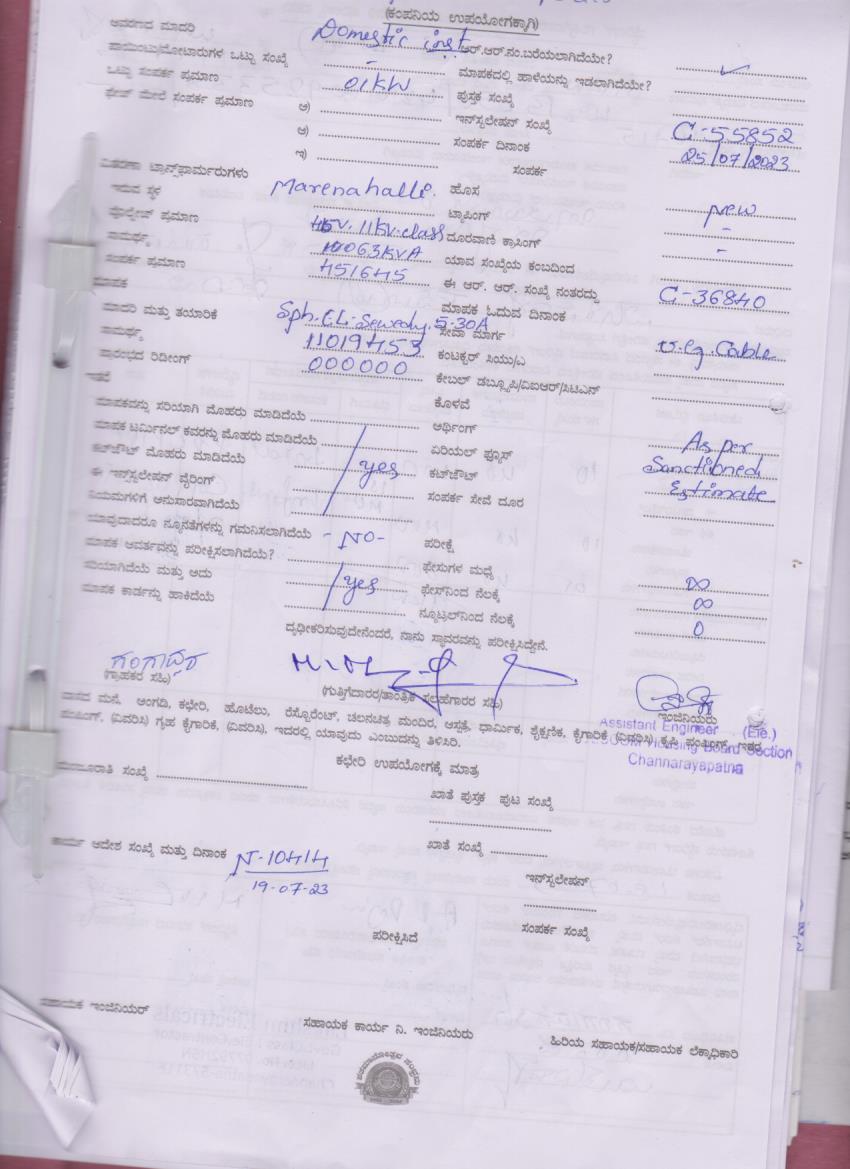 (ಕಂಪನಿಯ ಉಪಯೋಗಕ್ಕಾಗಿ)
ಆವರಣದ ಮಾದರಿ Domestic inst ಆರ್.ಆರ್.ನಂ.ಬರೆಯಲಾಗಿದೆಯೇ? ✓
ಪಾಯಿಂಟು/ಮೋಟಾರುಗಳ ಒಟ್ಟು ಸಂಖ್ಯೆ - ಮಾಪಕದಲ್ಲಿ ಹಾಳೆಯನ್ನು ಇಡಲಾಗಿದೆಯೇ?
ಒಟ್ಟು ಸಂಪರ್ಕ ಪ್ರಮಾಣ 01KW ಪುಸ್ತಕ ಸಂಖ್ಯೆ
ಫೇಸ್ ಮೇಲೆ ಸಂಪರ್ಕ ಪ್ರಮಾಣ ಅ) ಇನ್‌ಸ್ಟಲೇಷನ್ ಸಂಖ್ಯೆ C-55852
ಆ) ಸಂಪರ್ಕ ದಿನಾಂಕ 25/07/2023
ಇ) ಸಂಪರ್ಕ
ವಿತರಣಾ ಟ್ರಾನ್ಸ್‌ಫಾರ್ಮರುಗಳು
ಇರುವ ಸ್ಥಳ Marenahalli. ಹೊಸ New
ವೋಲ್ಟೇಜ್ ಪ್ರಮಾಣ 11KV-class ಟ್ಯಾಪಿಂಗ್ -
ಸಾಮರ್ಥ್ಯ 63KVA ದೂರವಾಣಿ ಕ್ರಾಸಿಂಗ್ -
ಸಂಪರ್ಕ ಪ್ರಮಾಣ 451645 ಯಾವ ಸಂಖ್ಯೆಯ ಕಂಬದಿಂದ
ಮಾಪಕ ಈ ಆರ್. ಆರ್. ಸಂಖ್ಯೆ ನಂತರದ್ದು C-36840
ಮಾಪಕ ಓದುವ ದಿನಾಂಕ
ಮಾದರಿ ಮತ್ತು ತಯಾರಿಕೆ Sph. EL-Sewedy. 5-30A ಸೇವಾ ಮಾರ್ಗ U.g. Cable
ಸಾಮರ್ಥ್ಯ 11019453 ಕಂಟಕ್ಟರ್ ಸಿಯು/ಎ
ಪ್ರಾರಂಭದ ರಿಡಿಂಗ್ 000000 ಕೇಬಲ್ ಡಬ್ಲ್ಯೂಪಿ/ಎಐಆರ್/ಸಿಟಿಎನ್
ಇತರೆ ಕೊಳವೆ
ಮಾಪಕವನ್ನು ಸರಿಯಾಗಿ ಮೊಹರು ಮಾಡಿದೆಯೆ ಅರ್ಥಿಂಗ್
ಮಾಪಕ ಟರ್ಮಿನಲ್ ಕವರನ್ನು ಮೊಹರು ಮಾಡಿದೆಯೆ ಏರಿಯಲ್ ಫ್ಯೂಸ್ As per
ಕಟ್‌ಔಟ್ ಮೊಹರು ಮಾಡಿದೆಯೆ yes ಕಟ್‌ಔಟ್ Sanctioned
ಈ ಇನ್‌ಸ್ಟಲೇಷನ್ ವೈರಿಂಗ್ ಸಂಪರ್ಕ ಸೇವೆ ದೂರ Estimate
ನಿಯಮಗಳಿಗೆ ಅನುಸಾರವಾಗಿದೆಯೆ
ಯಾವುದಾದರೂ ನ್ಯೂನತೆಗಳನ್ನು ಗಮನಿಸಲಾಗಿದೆಯೆ -NO- ಪರೀಕ್ಷೆ
ಮಾಪಕ ಆವರ್ತವನ್ನು ಪರೀಕ್ಷಿಸಲಾಗಿದೆಯೆ? ಫೇಸುಗಳ ಮಧ್ಯೆ ∞
ಸರಿಯಾಗಿದೆಯೆ ಮತ್ತು ಅದು yes ಫೇಸ್‌ನಿಂದ ನೆಲಕ್ಕೆ ∞
ಮಾಪಕ ಕಾರ್ಡನ್ನು ಹಾಕಿದೆಯೆ ನ್ಯೂಟ್ರಲ್‌ನಿಂದ ನೆಲಕ್ಕೆ 0
ದೃಢೀಕರಿಸುವುದೇನೆಂದರೆ, ನಾನು ಸ್ಥಾವರವನ್ನು ಪರೀಕ್ಷಿಸಿದ್ದೇನೆ.
ಗಂಗಾಧರ
(ಗ್ರಾಹಕರ ಸಹಿ) (ಗುತ್ತಿಗೆದಾರರ/ತಾಂತ್ರಿಕ ಸಲಹೆಗಾರರ ಸಹಿ) ಇಂಜಿನಿಯರು
ವಾಸದ ಮನೆ, ಅಂಗಡಿ, ಕಛೇರಿ, ಹೊಟೆಲು, ರೆಸ್ಟೋರೆಂಟ್, ಚಲನಚಿತ್ರ ಮಂದಿರ, ಆಸ್ಪತ್ರೆ, ಧಾರ್ಮಿಕ, ಶೈಕ್ಷಣಿಕ, ಕೈಗಾರಿಕೆ (ವಿವರಿಸಿ) ಕೃಷಿ ಪಂಪಿಂಗ್, ಇತರ
ಪಂಪಿಂಗ್, (ವಿವರಿಸಿ) ಗೃಹ ಕೈಗಾರಿಕೆ, (ವಿವರಿಸಿ), ಇದರಲ್ಲಿ ಯಾವುದು ಎಂಬುದನ್ನು ತಿಳಿಸಿರಿ.
Assistant Engineer (Ele.)
Housing Board Section
Channarayapatna
ಕಛೇರಿ ಉಪಯೋಗಕ್ಕೆ ಮಾತ್ರ
ಮಂಜೂರಾತಿ ಸಂಖ್ಯೆ ಖಾತೆ ಪುಸ್ತಕ ಪುಟ ಸಂಖ್ಯೆ
ಕಾರ್ಯ ಆದೇಶ ಸಂಖ್ಯೆ ಮತ್ತು ದಿನಾಂಕ N-10414 ಖಾತೆ ಸಂಖ್ಯೆ
19-07-23 ಇನ್‌ಸ್ಟಲೇಷನ್
ಪರೀಕ್ಷಿಸಿದೆ ಸಂಪರ್ಕ ಸಂಖ್ಯೆ
ಸಹಾಯಕ ಇಂಜಿನಿಯರ್ ಸಹಾಯಕ ಕಾರ್ಯ ನಿ. ಇಂಜಿನಿಯರು ಹಿರಿಯ ಸಹಾಯಕ/ಸಹಾಯಕ ಲೆಕ್ಕಾಧಿಕಾರಿ